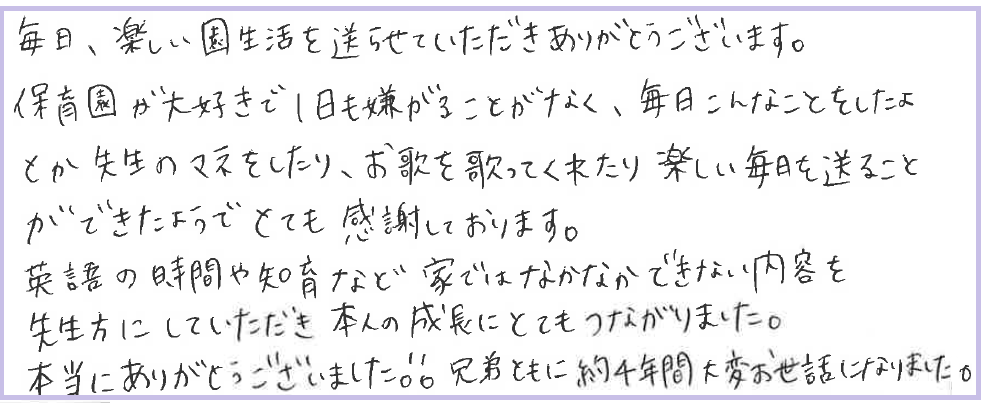 毎日、楽しい園生活を送らせていただきありがとうございます。
保育園が大好きで1日も嫌がることがなく、毎日こんなことをしたよ
とか先生のマネをしたり、お歌を歌ってくれたり楽しい毎日を送ること
ができたようでとても感謝しております。
英語の時間や知育など家ではなかなかできない内容を
先生方にしていただき本人の成長にとてもつながりました。
本当にありがとうございました!!。兄弟ともに約4年間大変お世話になりました。